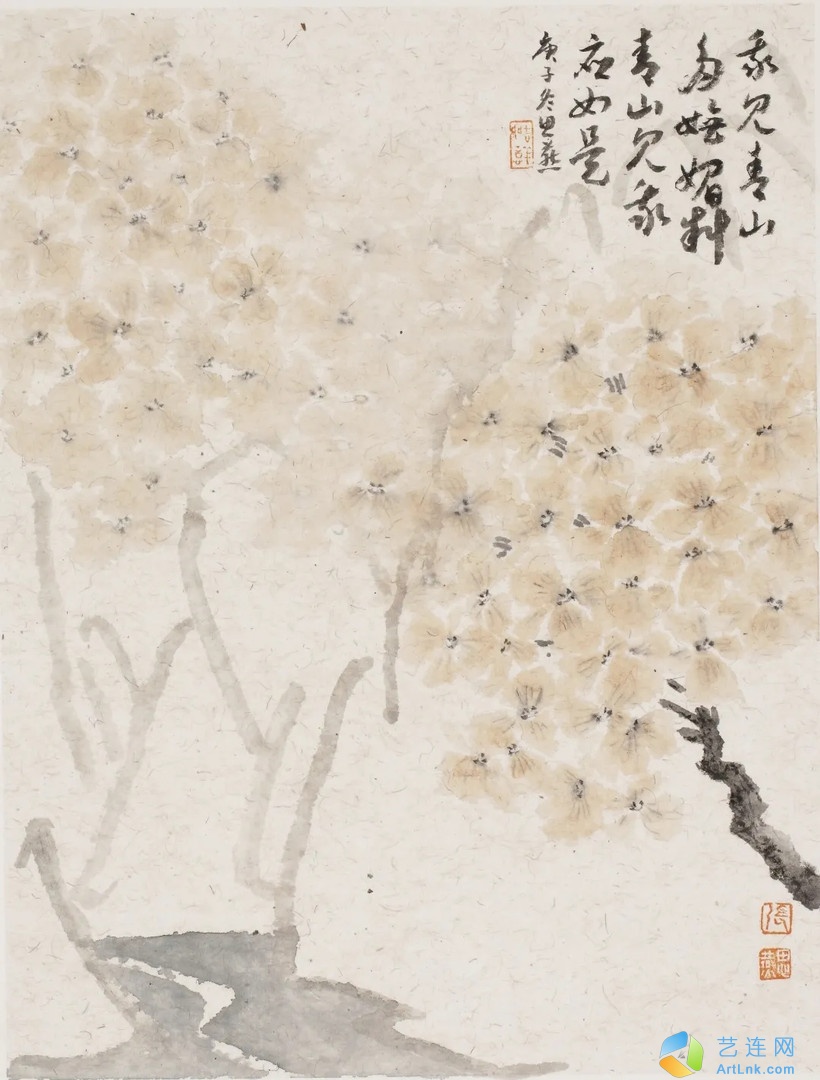 我见青山
多妩媚料
青山见我
应如是
庚子冬思燕
张
思燕
艺连网
ArtLnk.com